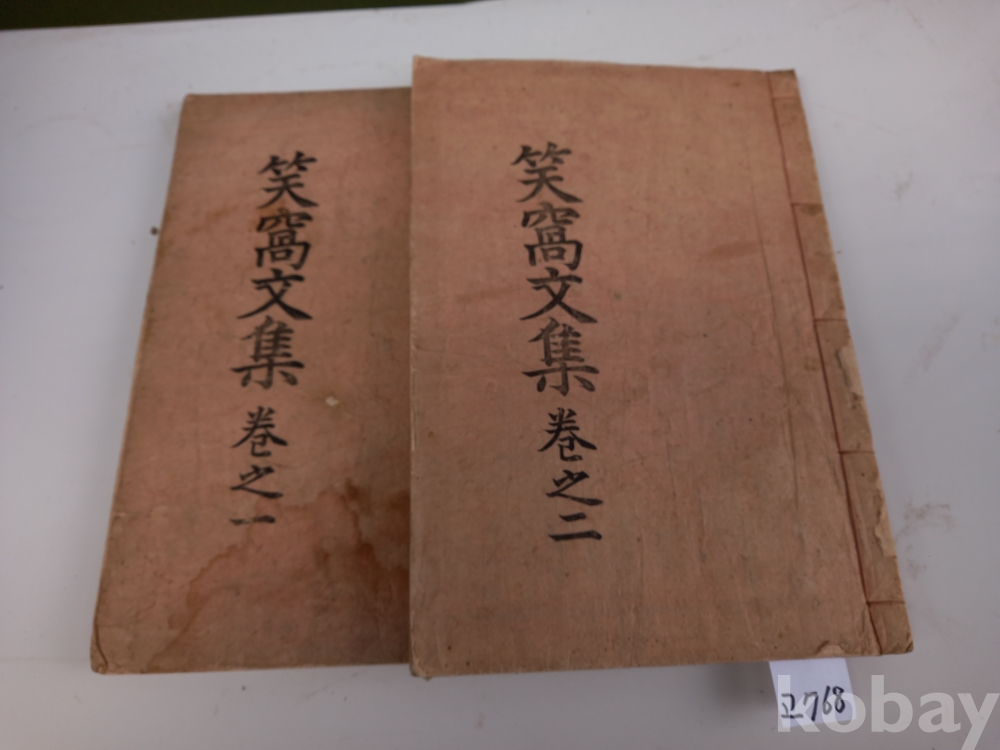 笑窩文集 卷之一
笑窩文集 卷之二
고768
kobay